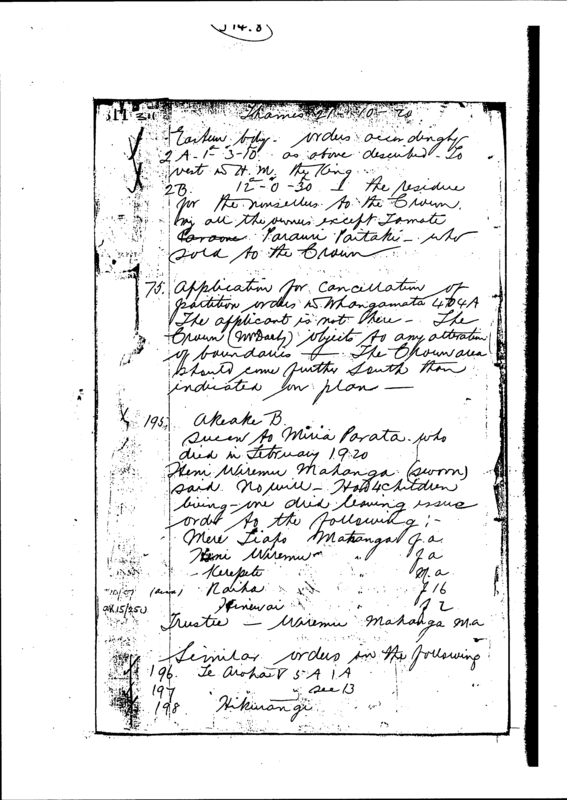 Thames 27-10-20
Eastern bdy. orders accordingly
2A - 1-3-10 as above described to
vest in H.M. the King
2B. 12-0-30 the residue
for the nonsellers to the Crown
all the owners except Tamate
Parauri Paitaki - who
sold to the Crown
75. Application for cancellation of
partition orders Whangamata 4D4A
The applicant is not here - The
Crown (Mr Daly) objects to any alteration
of boundaries - The Crown area
should come further South than
indicated on plan -
195. Akeake B
Succn to Miria Parata - who
died in February 1920
Heni Wiremu Mahanga (sworn)
said No will - Had 4 children
living - one died leaving issue
order to the following :-
Mere Tiapo Mahanga f.a.
Heni Wiremu " f a
Kerepeti " " m.a
Raiha " " f 16
Hinewai f 2
Trustee - Wiremu Mahanga m.a
Similar orders in the following
196. Te Aroha 5 A 1 A
197 " Sec 13
198 Hikurangi